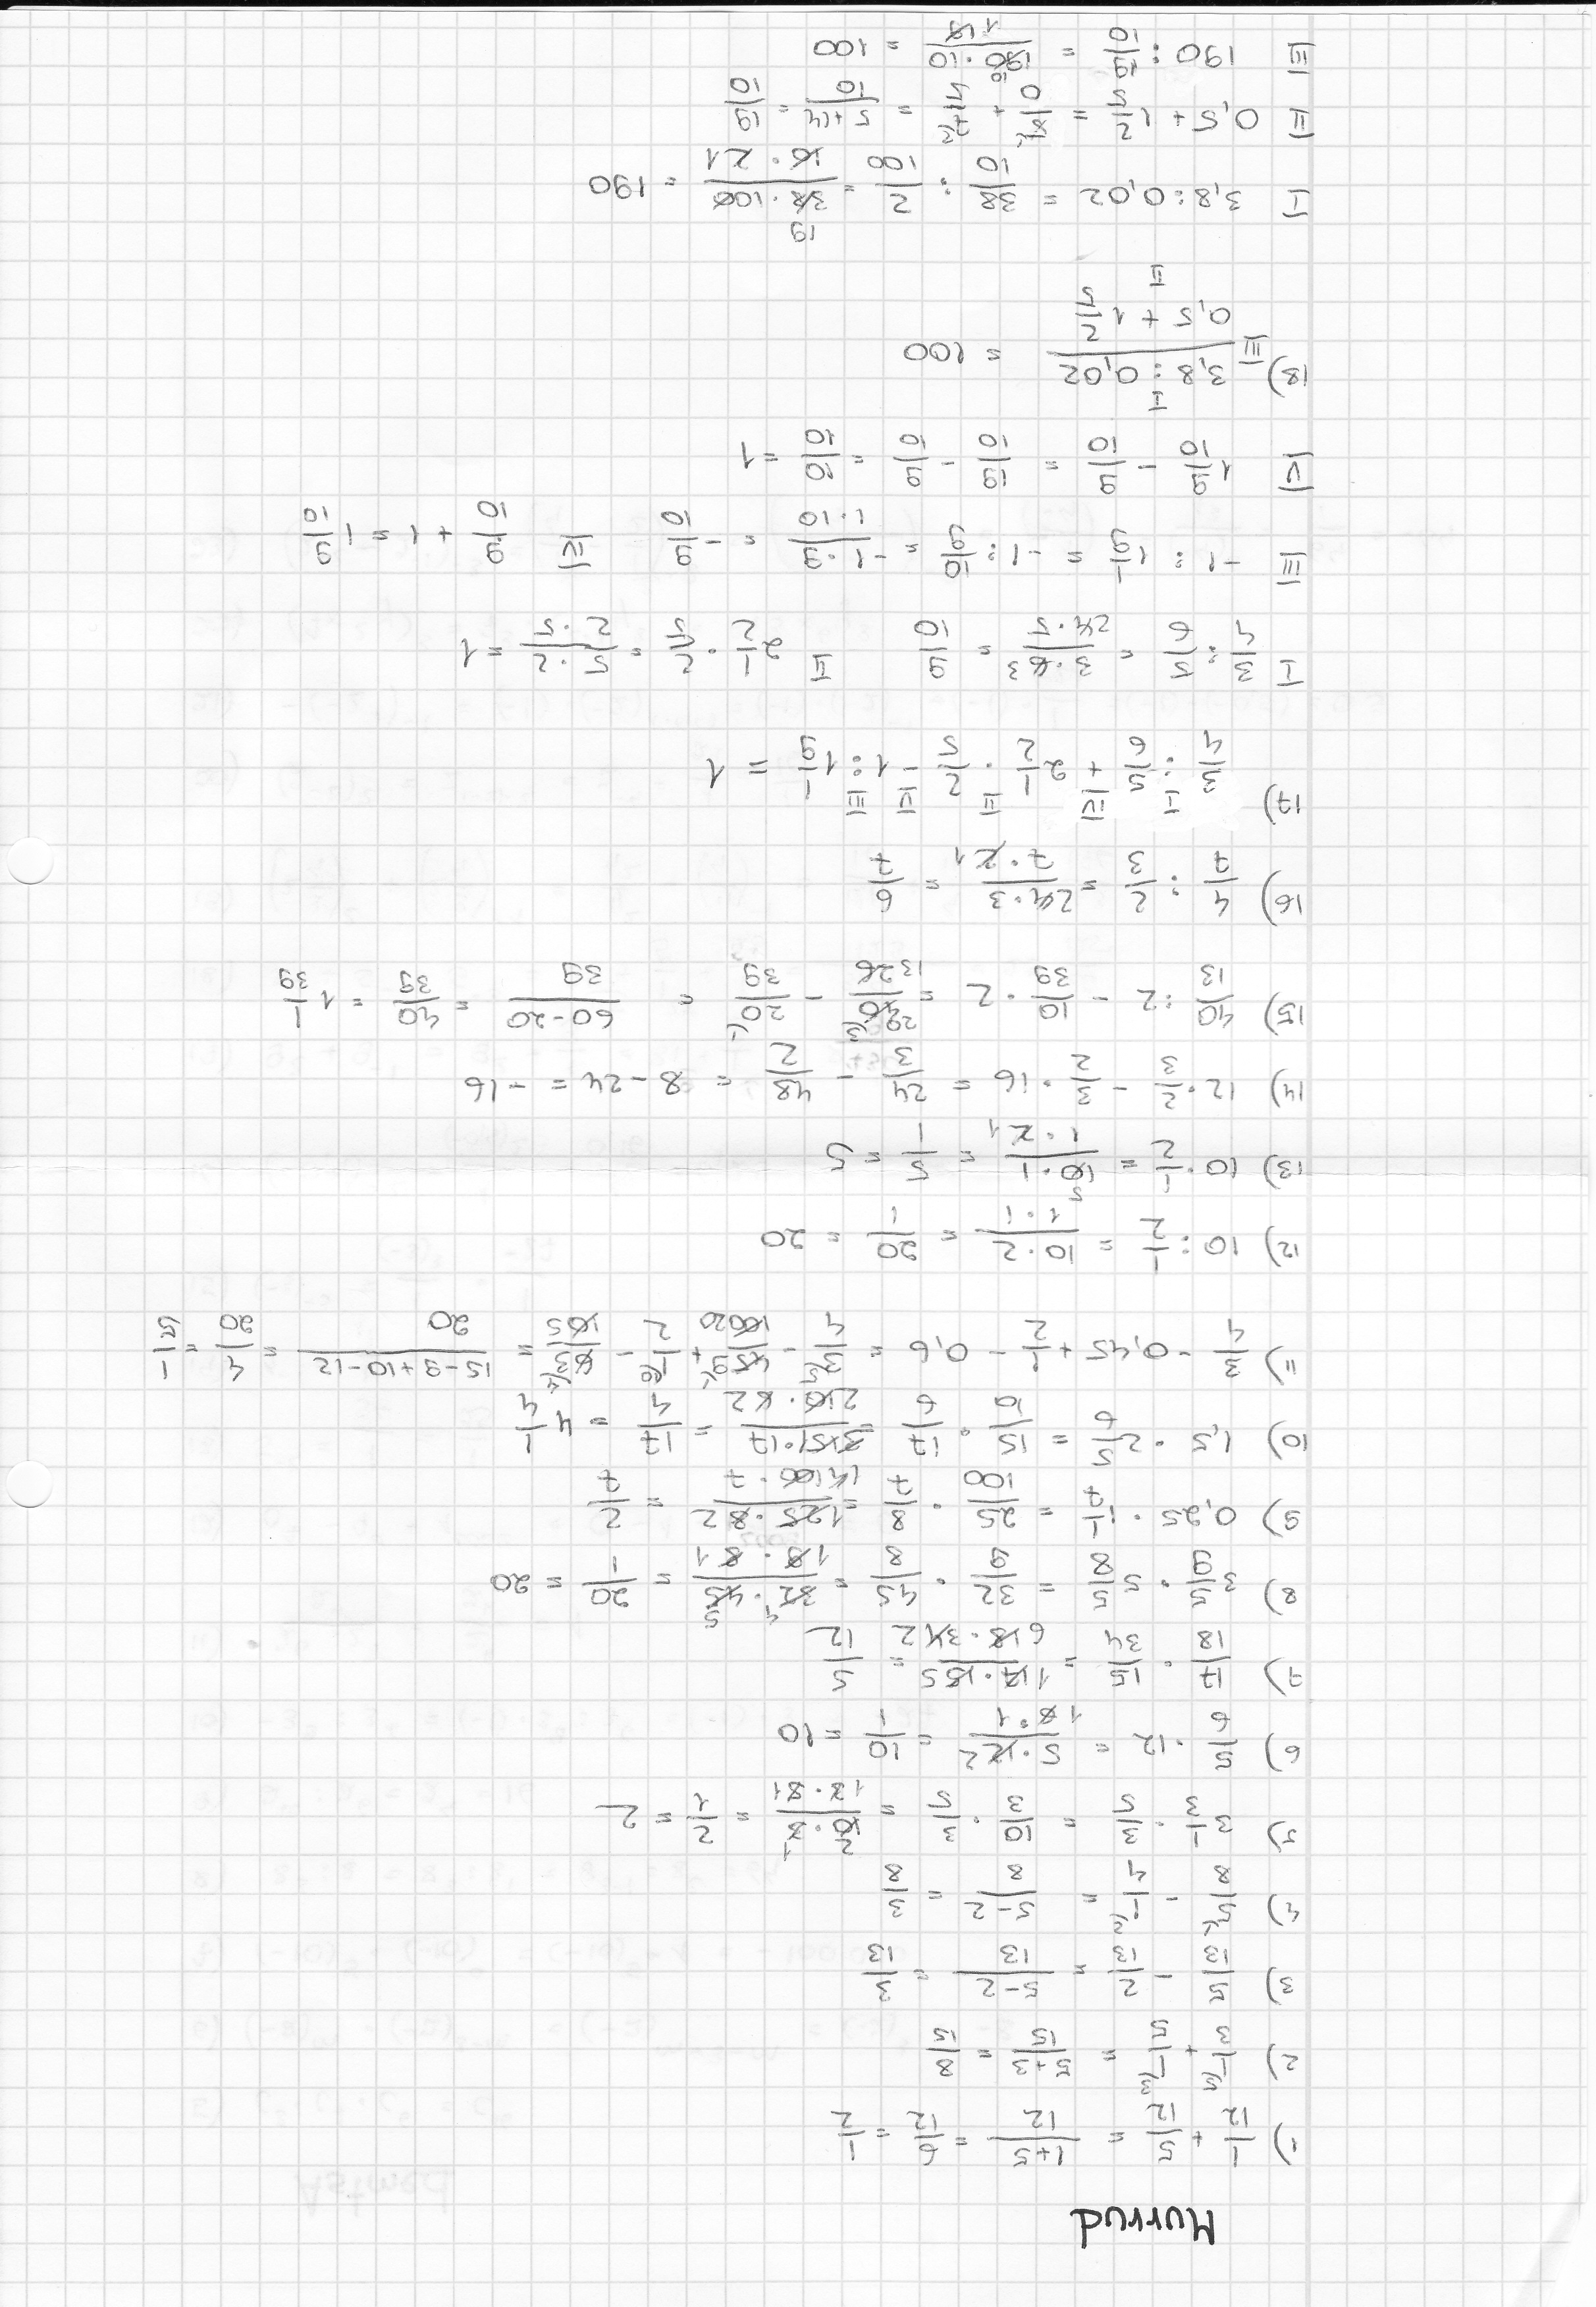 Murrud
1) 1/12 + 5/12 = (1+5)/12 = 6/12 = 1/2
2) 1/3 + 1/5 = (5+3)/15 = 8/15
3) 5/13 - 2/13 = (5-2)/13 = 3/13
4) 5/8 - 1/4 = (5-2)/8 = 3/8
5) 3 1/3 · 3/5 = 10/3 · 3/5 = (10·3)/(3·5) = 2/1 = 2
6) 5/6 · 12 = (5·12)/(6·1) = 10/1 = 10
7) 17/18 · 15/34 = (17·15)/(18·34) = 5/12
8) 3 5/9 · 5 5/8 = 32/9 · 45/8 = (32·45)/(9·8) = 20/1 = 20
9) 0,25 · 1 1/7 = 25/100 · 8/7 = (25·8)/(100·7) = 2/7
10) 1,5 · 2 5/6 = 15/10 · 17/6 = (15·17)/(10·6) = 17/4 = 4 1/4
11) 3/4 - 0,45 + 1/2 - 0,6 = 3/4 - 45/100 + 1/2 - 6/10 = (15-9+10-12)/20 = 4/20 = 1/5
12) 10 : 1/2 = (10·2)/(1·1) = 20/1 = 20
13) 10 · 1/2 = (10·1)/(1·2) = 5/1 = 5
14) 12 · 2/3 - 3/2 · 16 = 24/3 - 48/2 = 8 - 24 = -16
15) 40/13 : 2 - 10/39 · 2 = 40/26 - 20/39 = (60-20)/39 = 40/39 = 1 1/39
16) 4/7 : 2/3 = (4·3)/(7·2) = 6/7
17) 3/4 : 5/6 + 2 1/2 · 2/5 - 1 : 1 1/9 = 1
I 3/4 : 5/6 = (3·6)/(4·5) = 9/10 II 2 1/2 · 2/5 = (5·2)/(2·5) = 1
III -1 : 1 1/9 = -1 : 10/9 = (-1·9)/(1·10) = -9/10 IV 9/10 + 1 = 1 9/10
V 1 9/10 - 9/10 = 19/10 - 9/10 = 10/10 = 1
18) (3,8 : 0,02)/(0,5 + 1 2/5) = 100
I 3,8 : 0,02 = 38/10 : 2/100 = (38·100)/(10·2) = 190
II 0,5 + 1 2/5 = 5/10 + 7/5 = (5+14)/10 = 19/10
III 190 : 19/10 = (190·10)/19 = 100